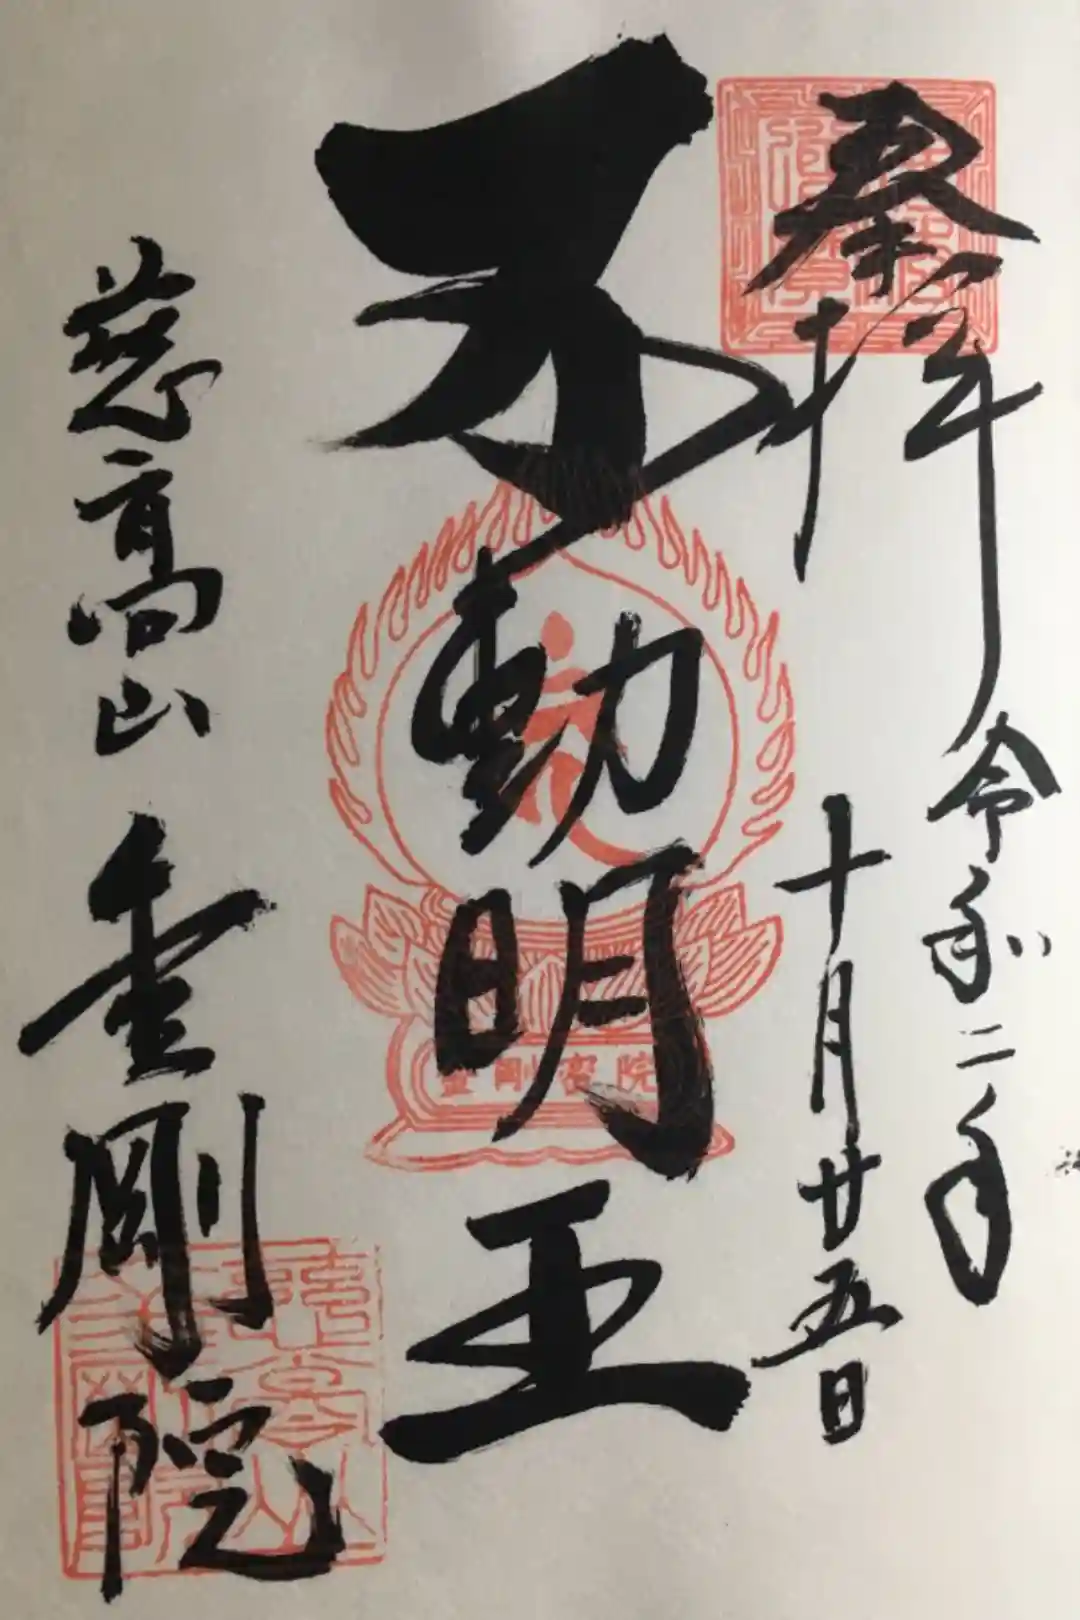 奉拝
令和二年
十月廿五日
不動明王
金剛密院
慈高山
金剛院